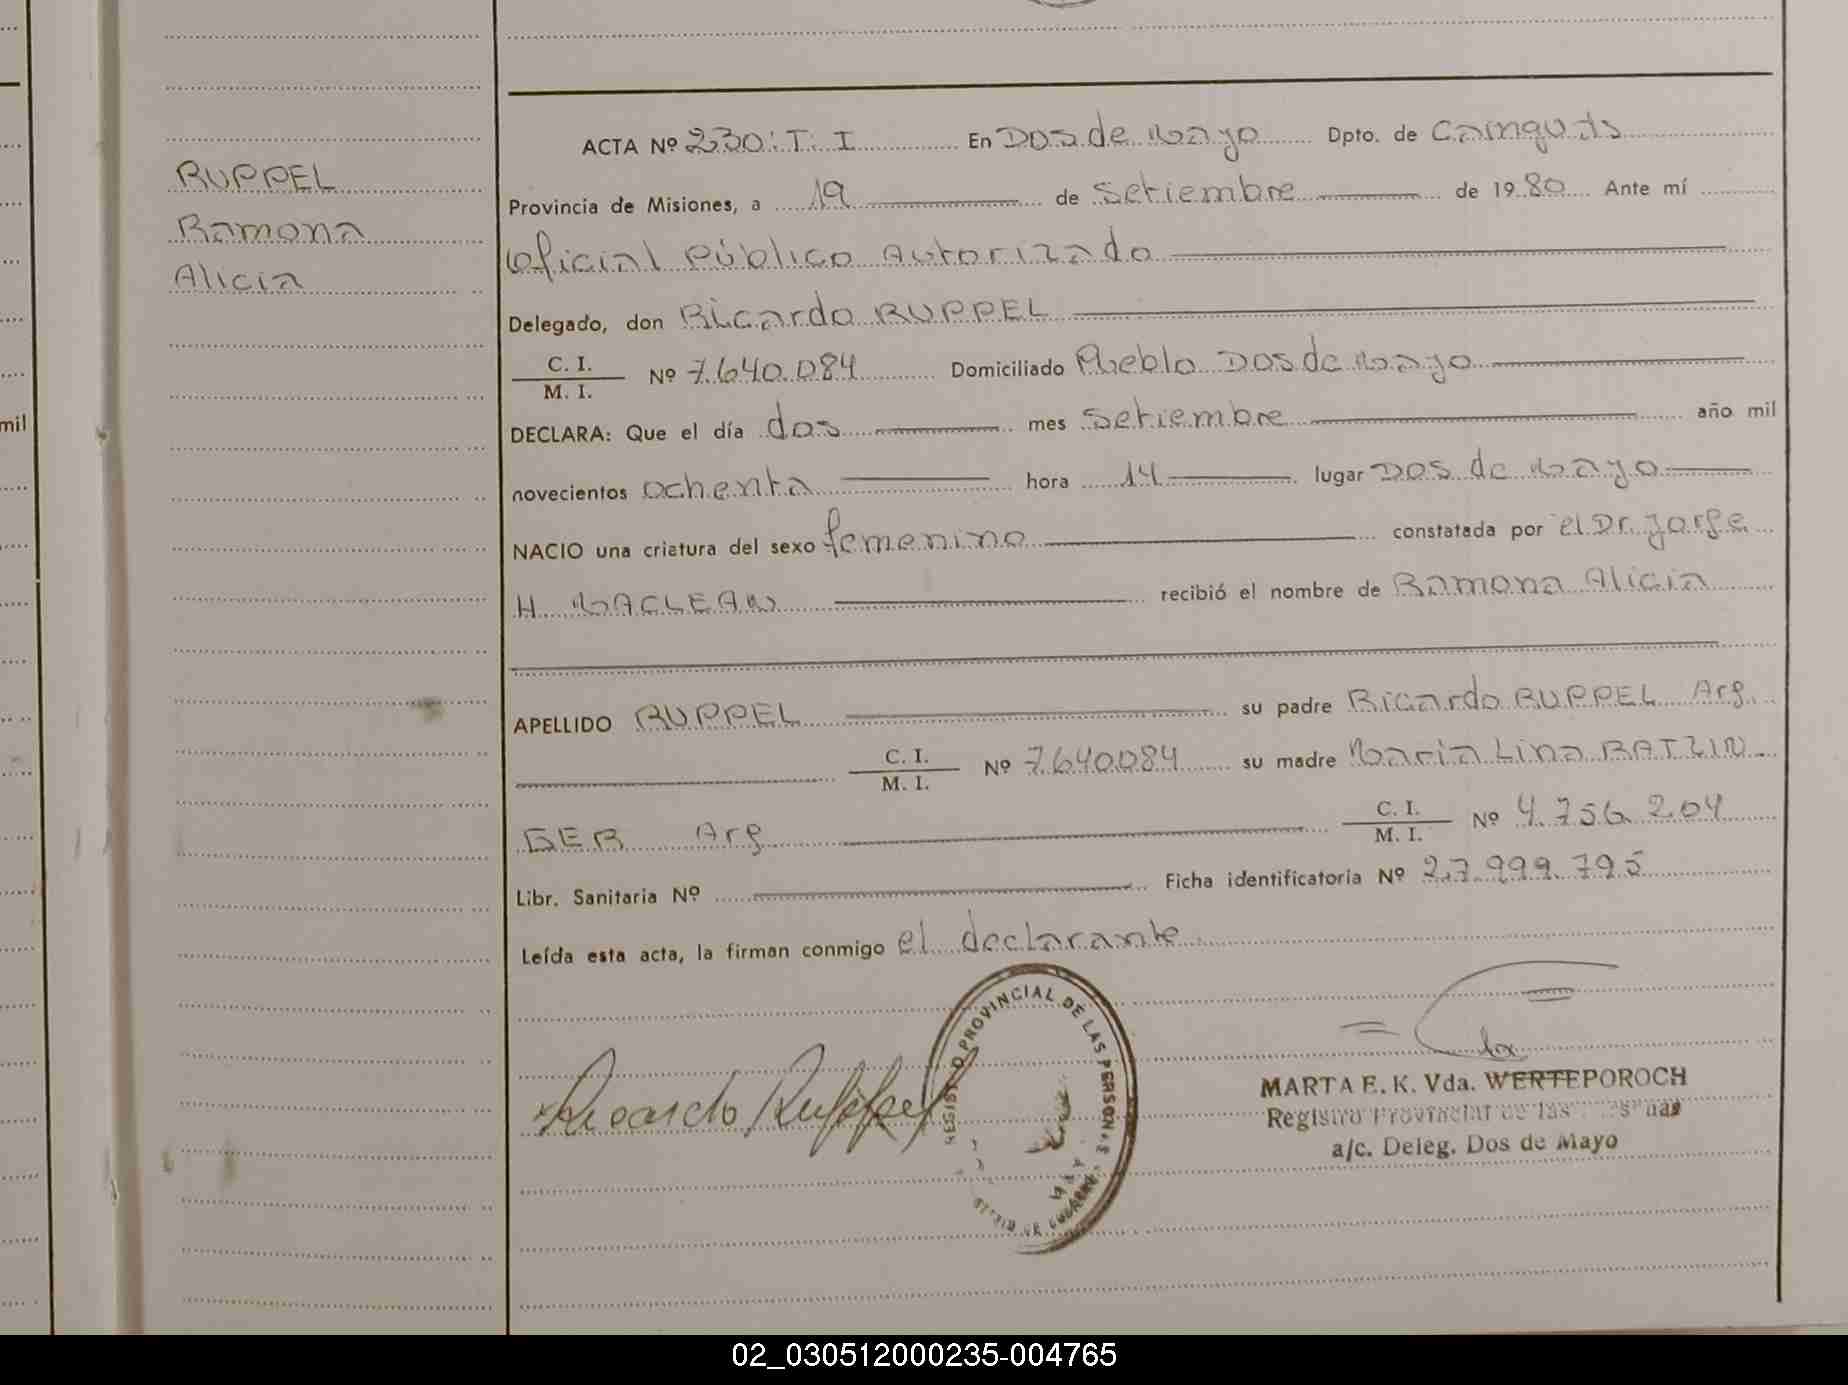 RUPPEL
Ramona
Alicia
mil
ACTA Nº 230. T. I En Dos de Mayo Dpto. de Cainguás
Provincia de Misiones, a 19 de Setiembre de 1980 Ante mí
Oficial Público Autorizado
Delegado, don Ricardo RUPPEL
C. I. / M. I. Nº 7.640.084 Domiciliado Pueblo Dos de Mayo
DECLARA: Que el día dos mes Setiembre año mil
novecientos ochenta hora 14 lugar Dos de Mayo
NACIO una criatura del sexo femenino constatada por el Dr. Jorge
H. MACLEAN recibió el nombre de Ramona Alicia
APELLIDO RUPPEL su padre Ricardo RUPPEL Arg.
C. I. / M. I. Nº 7.640.084 su madre Maria Lina RATZIN
GER Arg C. I. / M. I. Nº 4.756.204
Libr. Sanitaria Nº Ficha identificatoria Nº 27.999.795
Leída esta acta, la firman conmigo el declarante
Ricardo Ruppel
REGISTRO PROVINCIAL DE LAS PERSONAS
MARTA E. K. Vda. WERTEPOROCH
Registro Provincial de las Personas
a/c. Deleg. Dos de Mayo
02_030512000235-004765